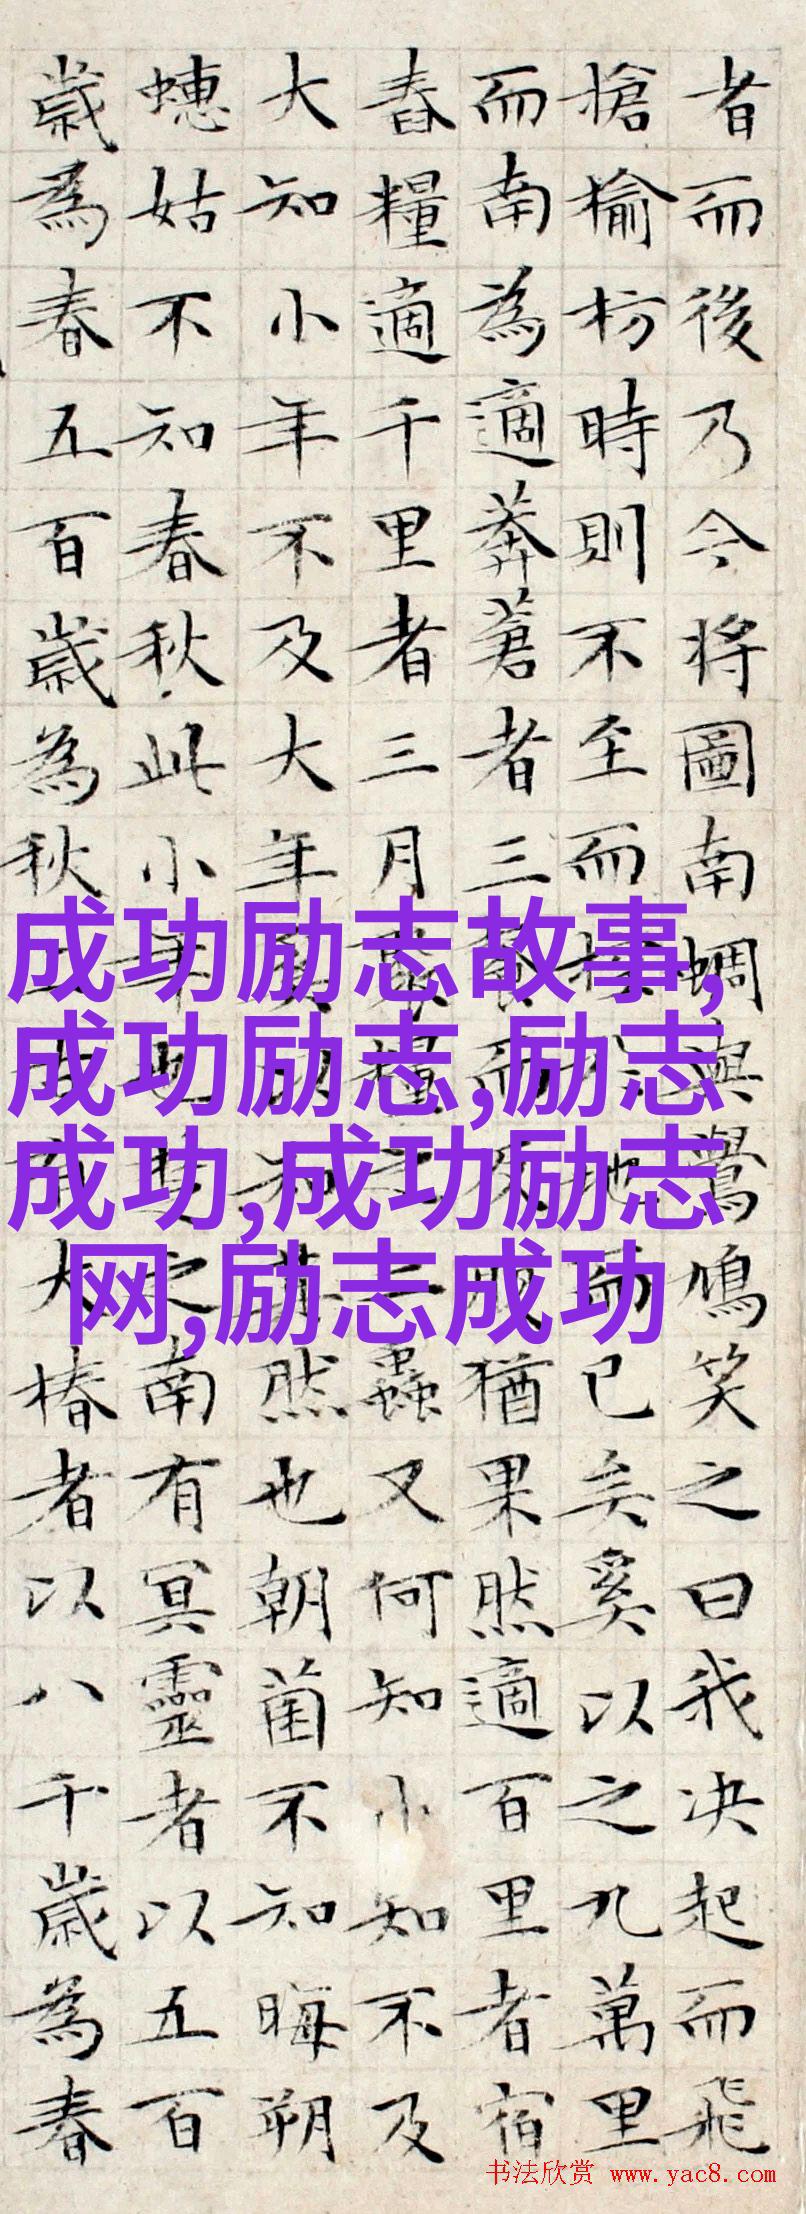 者而後乃今將圖南蜩與鷽鳩笑之曰我决起而飛
槍榆枋時則不至而控地而已矣奚以之九萬里
而南為適莽蒼者三飡而反腹猶果然適百里者宿
舂糧適千里者三月聚糧之二蟲又何知小知不及
大知小年不及大年奚以知其然也朝菌不知晦朔
蟪姑不知春秋此小年也楚之南有冥靈者以五百
歲為春五百歲為秋上古有大椿者以八千歲為春
成功励志故事,
成功励志,励志
成功,成功励志
网,励志成功
书法欣赏 www.yac8.com